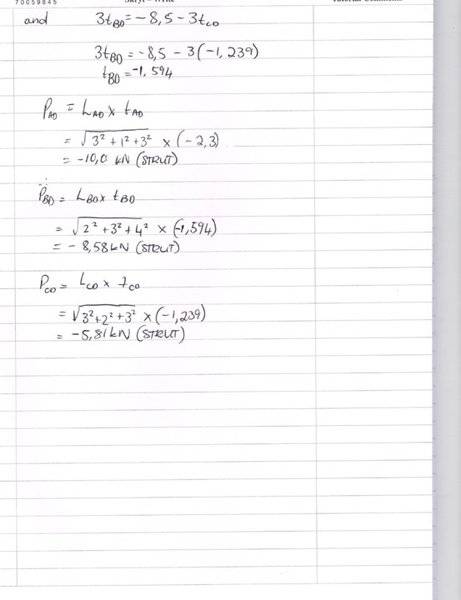 70059845
and 3t_BD = -8,5 - 3t_CD
3t_BD = -8,5 - 3(-1,239)
t_BD = -1,594
P_AD = L_AD x t_AD
= √(3² + 1² + 3²) x (-2,3)
= -10,0 kN (STRUT)
∴ P_BD = L_BD x t_BD
= √(2² + 3² + 4²) x (-1,594)
= -8,58 kN (STRUT)
P_CD = L_CD x t_CD
= √(3² + 2² + 3²) x (-1,239)
= -5,81 kN (STRUT)